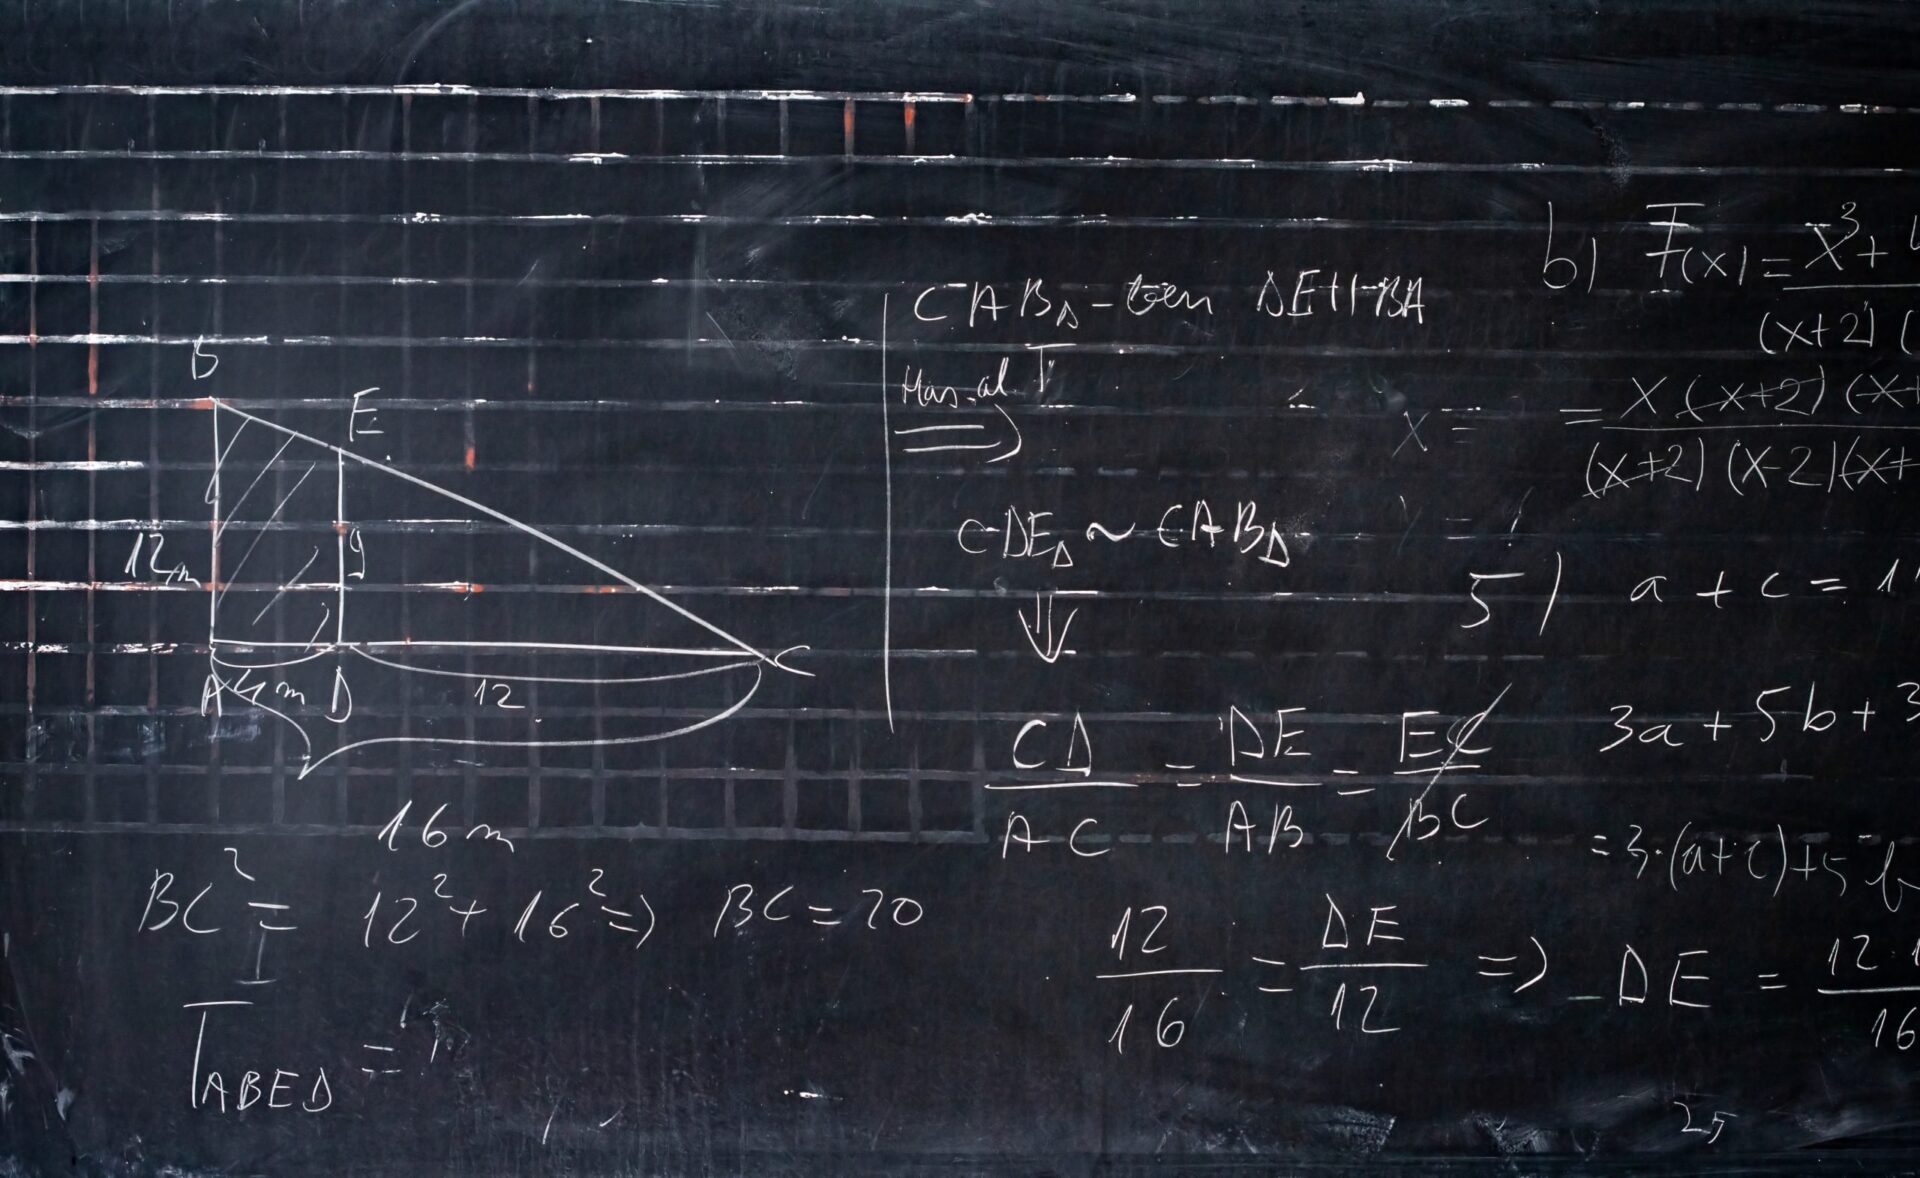 B
E
12m
9
A 4m D
12
C
16 m
BC² = 12² + 16² => BC = 20
T ABED =
CAB△-ben DE || BA
Has. al. T
=>
CDE△ ~ CAB△
⇓
CD/AC = DE/AB = EC/BC
12/16 = DE/12 => DE = 12·1/16
b) F(x) = x³ + 4/(x+2) (
= x (x+2) (x+/(x+2) (x-2) (x+
x =
5) a + c = 1
3a + 5b + 3
= 3·(a+c) + 5b
25